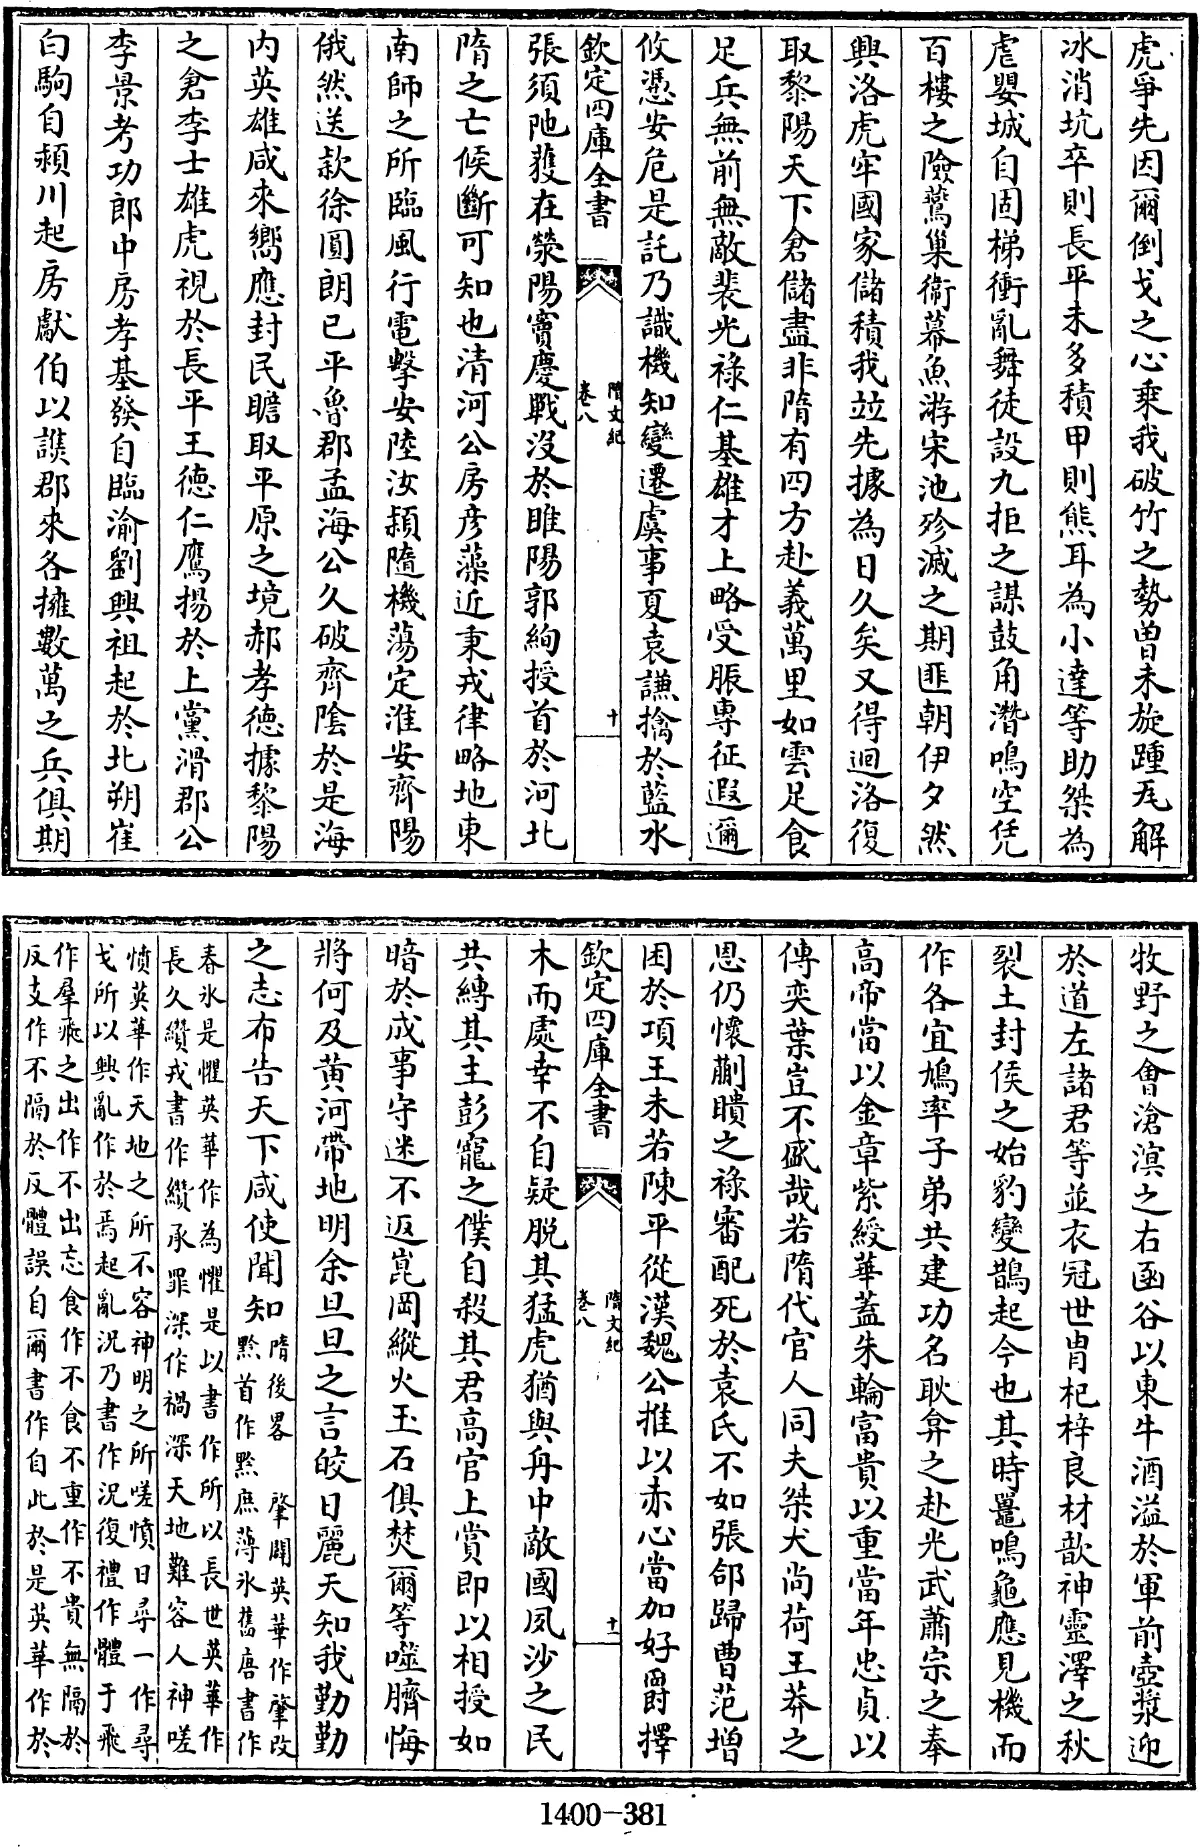 虎爭先因爾倒戈之心乗我破竹之勢曽未旋踵瓦解
冰消坑卒則長平未多積甲則熊耳為小達等助桀為
虐嬰城自固梯衝亂舞徒設九拒之謀鼓角潛鳴空凭
百樓之險鷰巢衛幕魚游宋池殄滅之期匪朝伊夕然
興洛虎牢國家儲積我竝先據為日久矣又得迴洛復
取黎陽天下倉儲盡非隋有四方赴義萬里如雲足食
足兵無前無敵裴光祿仁基雄才上略受脤專征遐邇
攸憑安危是託乃識機知變遷虞事夏袁謙擒於藍水
欽定四庫全書
隋文紀
卷八
十
張須陁獲在滎陽竇慶戰沒於睢陽郭絢授首於河北
隋之亡候斷可知也清河公房彥藻近秉戎律略地東
南師之所臨風行電擊安陸汝潁隨機蕩定淮安齊陽
俄然送款徐圓朗已平魯郡孟海公久破齊隂於是海
内英雄咸來嚮應封民瞻取平原之境郝孝德據黎陽
之倉李士雄虎視於長平王德仁鷹揚於上黨滑郡公
李景考功郎中房孝基發自臨渝劉興祖起於北朔崔
白駒自潁川起房獻伯以譙郡來各擁數萬之兵俱期
牧野之會滄溟之右函谷以東牛酒溢於軍前壺漿迎
於道左諸君等並衣冠世胄杞梓良材歆神靈澤之秋
裂土封侯之始豹變鵲起今也其時鼉鳴龜應見機而
作各宜鳩率子弟共建功名耿弇之赴光武蕭宗之奉
高帝當以金章紫綬華蓋朱輪富貴以重當年忠貞以
傳奕葉豈不盛哉若隋代官人同夫桀犬尚荷王莽之
恩仍懷蒯瞶之祿審配死於袁氏不如張郃歸曹范增
困於項王未若陳平從漢魏公推以赤心當加好爵擇
欽定四庫全書
隋文紀
卷八
十一
木而處幸不自疑脫其猛虎猶與舟中敵國夙沙之民
共縛其主彭寵之僕自殺其君高官上賞即以相授如
暗於成事守迷不返崑岡縱火玉石俱焚爾等噬臍悔
將何及黃河帶地明余旦旦之言皎日麗天知我勤勤
之志布告天下咸使聞知
隋後畧　肇闢英華作肇改
黔首作黔庶薄氷舊唐書作
春氷是懼英華作為懼是以書作所以長世英華作
長久纘戎書作纘承罪深作禍深天地難容人神嗟
憤英華作天地之所不容神明之所嗟憤日尋一作尋
戈所以興亂作於焉起亂況乃書作況復禮作體于飛
作羣飛之出作不出忘食作不食不重作不貴無隔於
反支作不隔於反體誤自爾書作自此於是英華作於
1400-381